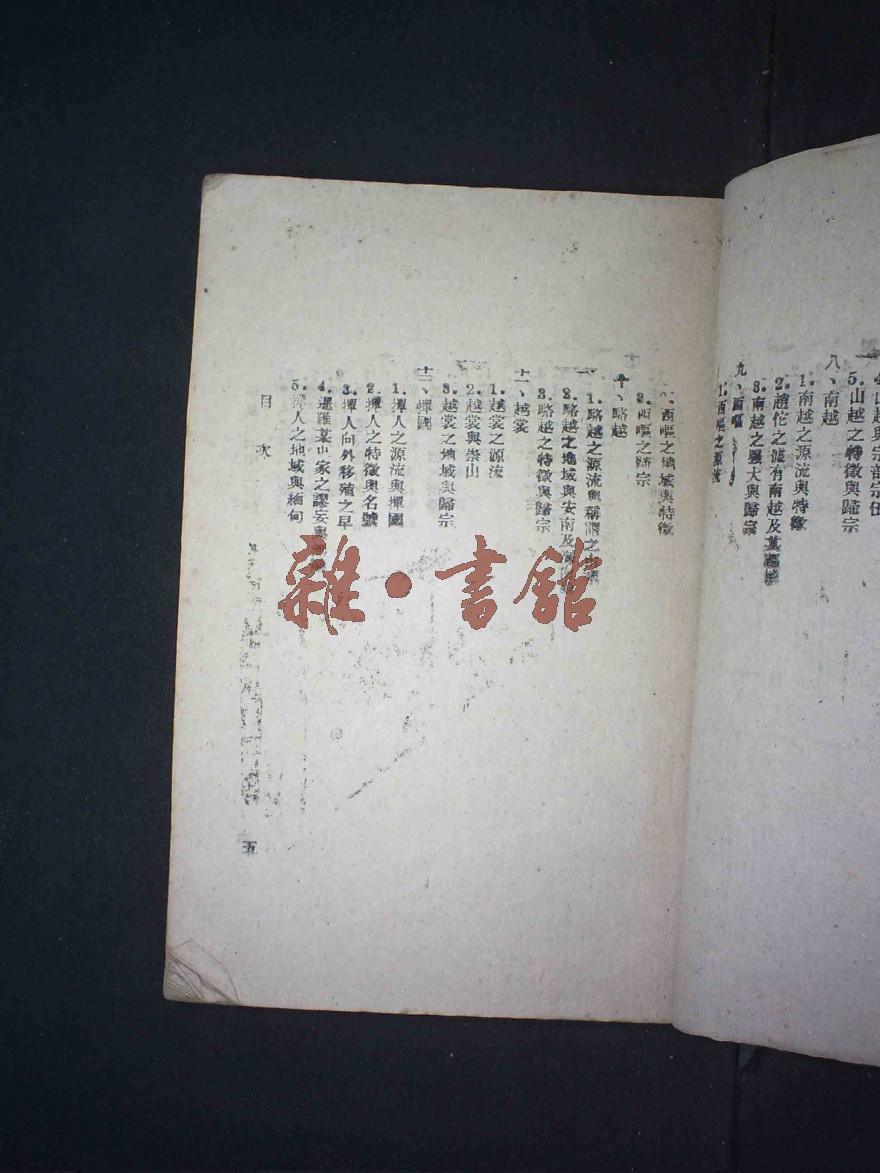 5.山越之特徵與歸宗
八、南越
1.南越之源流與特徵
2.趙佗之據有南越及其
3.南越之強大與歸宗
九、西嘔
1.西嘔之源流
2.西嘔之地域與特徵
3.西嘔之歸宗
十、駱越
1.駱越之源流與稱謂之
2.駱越之地域與安南及
3.駱越之特徵與歸宗
十一、越裳
1.越裳之源流
2.越裳與崇山
3.越裳之地域與歸宗
十二、撣國
1.撣人之源流與撣國
2.撣人之特徵與名號
3.撣人向外移殖之早
4.暹羅某史家之謬妄與
5.撣人之地域與緬甸
目次
五
雜·書館